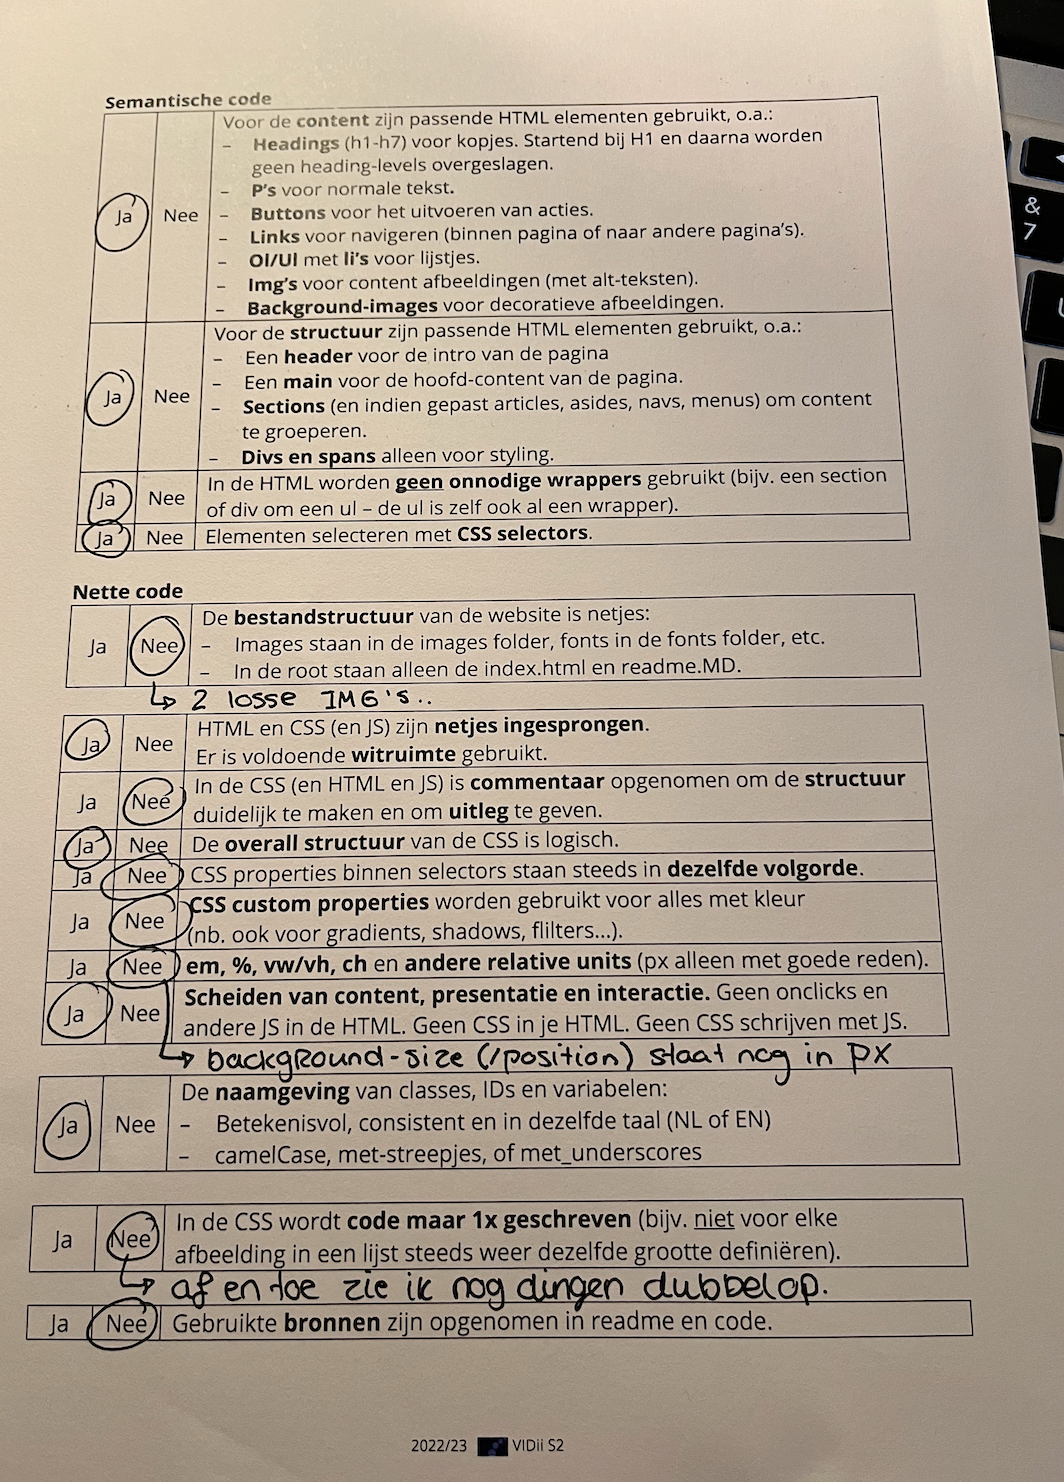 Semantische code
Voor de content zijn passende HTML elementen gebruikt, o.a.:
– Headings (h1-h7) voor kopjes. Startend bij H1 en daarna worden
geen heading-levels overgeslagen.
– P's voor normale tekst.
Ja Nee – Buttons voor het uitvoeren van acties.
– Links voor navigeren (binnen pagina of naar andere pagina's).
– Ol/Ul met li's voor lijstjes.
– Img's voor content afbeeldingen (met alt-teksten).
– Background-images voor decoratieve afbeeldingen.
Voor de structuur zijn passende HTML elementen gebruikt, o.a.:
– Een header voor de intro van de pagina
– Een main voor de hoofd-content van de pagina.
Ja Nee – Sections (en indien gepast articles, asides, navs, menus) om content
te groeperen.
– Divs en spans alleen voor styling.
In de HTML worden geen onnodige wrappers gebruikt (bijv. een section
Ja Nee of div om een ul – de ul is zelf ook al een wrapper).
Ja Nee Elementen selecteren met CSS selectors.
Nette code
De bestandstructuur van de website is netjes:
Ja Nee – Images staan in de images folder, fonts in de fonts folder, etc.
– In de root staan alleen de index.html en readme.MD.
↳ 2 losse IMG's..
HTML en CSS (en JS) zijn netjes ingesprongen.
Ja Nee Er is voldoende witruimte gebruikt.
In de CSS (en HTML en JS) is commentaar opgenomen om de structuur
Ja Nee duidelijk te maken en om uitleg te geven.
Ja Nee De overall structuur van de CSS is logisch.
Ja Nee CSS properties binnen selectors staan steeds in dezelfde volgorde.
CSS custom properties worden gebruikt voor alles met kleur
Ja Nee (nb. ook voor gradients, shadows, flilters...).
Ja Nee em, %, vw/vh, ch en andere relative units (px alleen met goede reden).
Scheiden van content, presentatie en interactie. Geen onclicks en
Ja Nee andere JS in de HTML. Geen CSS in je HTML. Geen CSS schrijven met JS.
↳ background-size (/position) staat nog in px
De naamgeving van classes, IDs en variabelen:
Ja Nee – Betekenisvol, consistent en in dezelfde taal (NL of EN)
– camelCase, met-streepjes, of met_underscores
In de CSS wordt code maar 1x geschreven (bijv. niet voor elke
Ja Nee afbeelding in een lijst steeds weer dezelfde grootte definiëren).
↳ af en toe zie ik nog dingen dubbelop.
Ja Nee Gebruikte bronnen zijn opgenomen in readme en code.
2022/23 VIDii S2
&
7